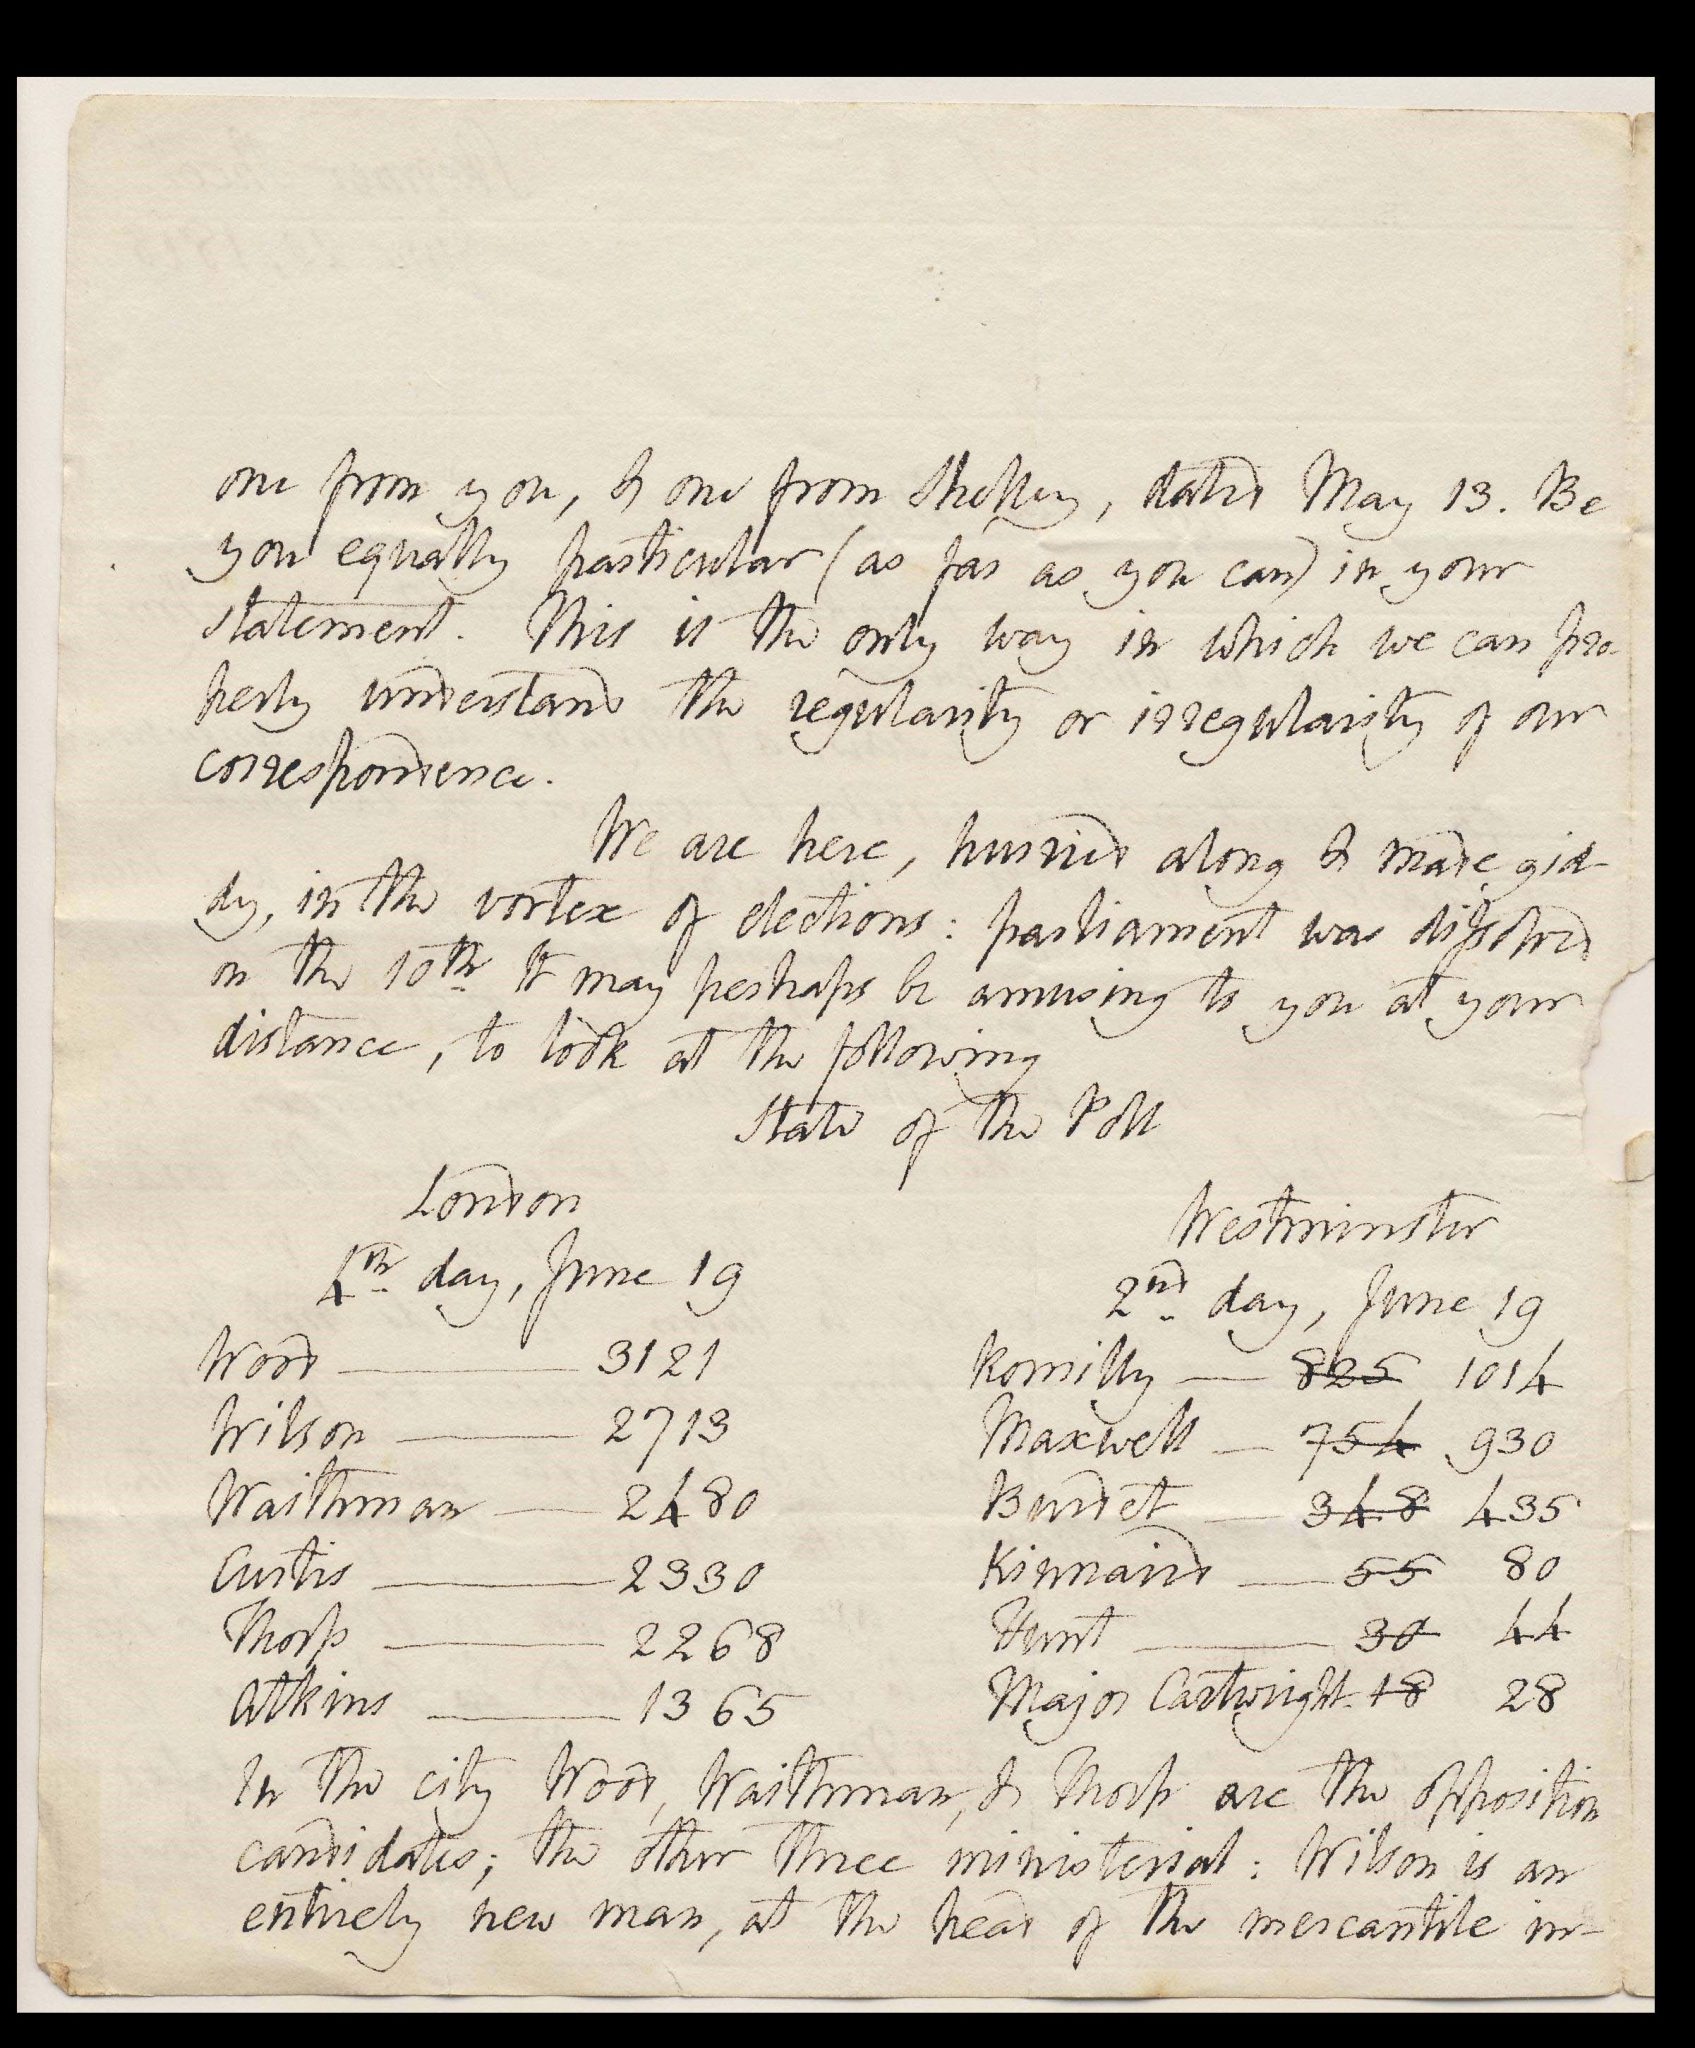 one from you, & one from Shelley, dated May 13. Be
you equally particular (as far as you can) in your
statement. This is the only way in which we can pro-
perly understand the regularity or irregularity of our
correspondence.
We are here, hurried along & made gid-
dy, in the vortex of elections: parliament was dissolved
on the 10th. It may perhaps be amusing to you at your
distance, to look at the following
State of the Poll
London
4th day, June 19
Wood — 3121
Wilson — 2713
Waithman — 2480
Curtis — 2330
Thorp — 2268
Atkins — 1365
Westminster
2nd day, June 19
Romilly — 825 1014
Maxwell — 754 930
Burdet — 348 435
Kinnaird — 55 80
Hunt — 30 44
Major Cartwright — 18 28
In the city Wood, Waithman, & Thorp are the opposition
candidates; the other three ministerial: Wilson is an
entirely new man, at the head of the mercantile in-